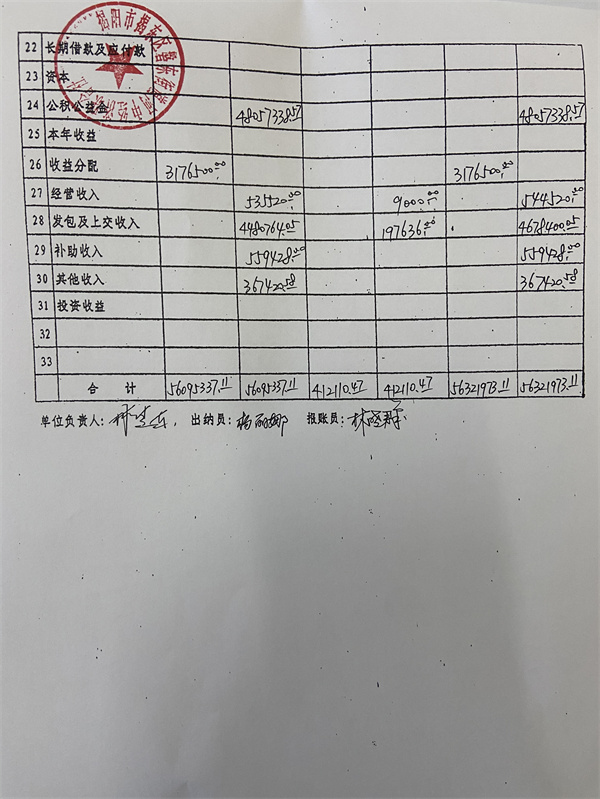 揭阳市揭东区
22 长期借款及应付款
23 资本
24 公积公益金 48057338.57 48057338.57
25 本年收益
26 收益分配 3176500.00 3176500.00
27 经营收入 535520.00 9000.00 544520.00
28 发包及上交收入 4480764.05 197636.00 4678400.05
29 补助收入 559428.00 559428.00
30 其他收入 367420.58 367420.58
31 投资收益
32
33
合 计 56095337.11 56095337.11 412110.47 412110.47 56321973.11 56321973.11
单位负责人: 出纳员:杨丽娜 报账员:林